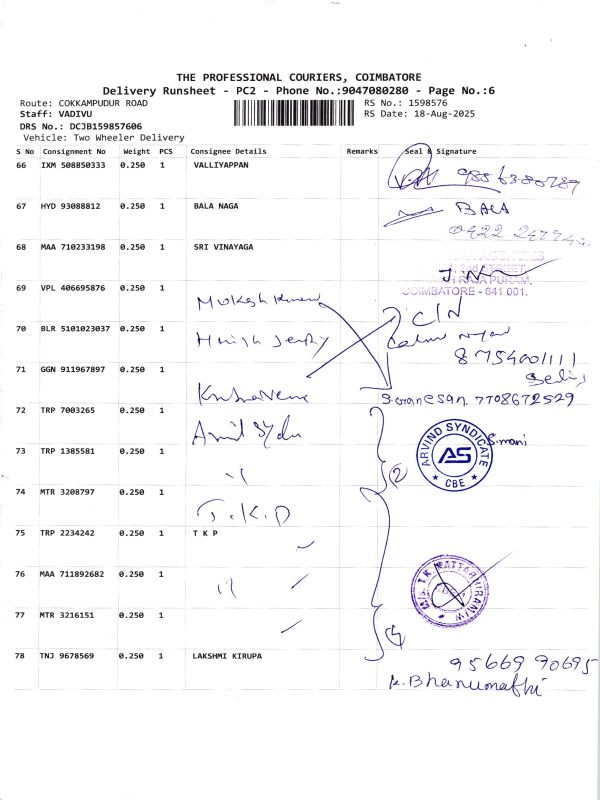 THE PROFESSIONAL COURIERS, COIMBATORE
Delivery Runsheet - PC2 - Phone No.:9047080280 - Page No.:6
Route: COKKAMPUDUR ROAD RS No.: 1598576
Staff: VADIVU RS Date: 18-Aug-2025
DRS No.: DCJB159857606
Vehicle: Two Wheeler Delivery
S No Consignment No Weight PCS Consignee Details Remarks Seal & Signature
66 IXM 508850333 0.250 1 VALLIYAPPAN
67 HYD 93088812 0.250 1 BALA NAGA BALA
0422
68 MAA 710233198 0.250 1 SRI VINAYAGA
RAJA PURAM,
COIMBATORE - 641 001.
69 VPL 406695876 0.250 1
Mukesh Kumar
70 BLR 5101023037 0.250 1 Harish
8754001111
71 GGN 911967897 0.250 1
Ganesan 7708672529
72 TRP 7003265 0.250 1
73 TRP 1385581 0.250 1 ARVIND SYNDICATE AS CBE S.mani
2
74 MTR 3208797 0.250 1 T.K.P
75 TRP 2234242 0.250 1 T K P
76 MAA 711892682 0.250 1
77 MTR 3216151 0.250 1
4
78 TNJ 9678569 0.250 1 LAKSHMI KIRUPA 9566990695
Bhanumathi